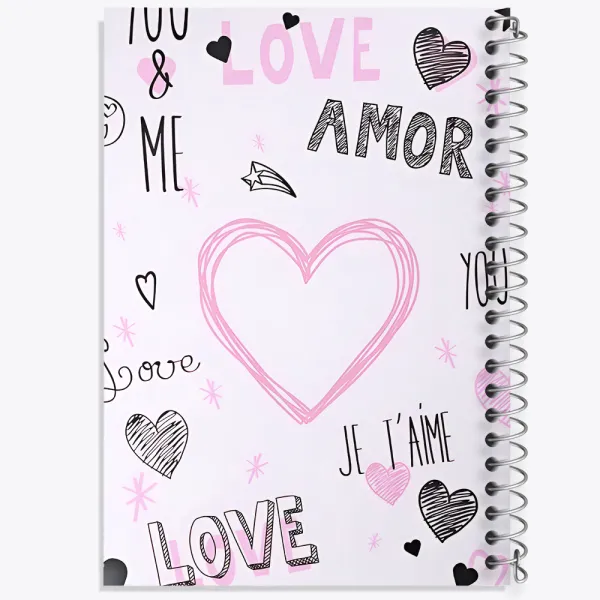 YOU
&
ME
LOVE
AMOR
YOU
Love
JE T'AIME
LOVE